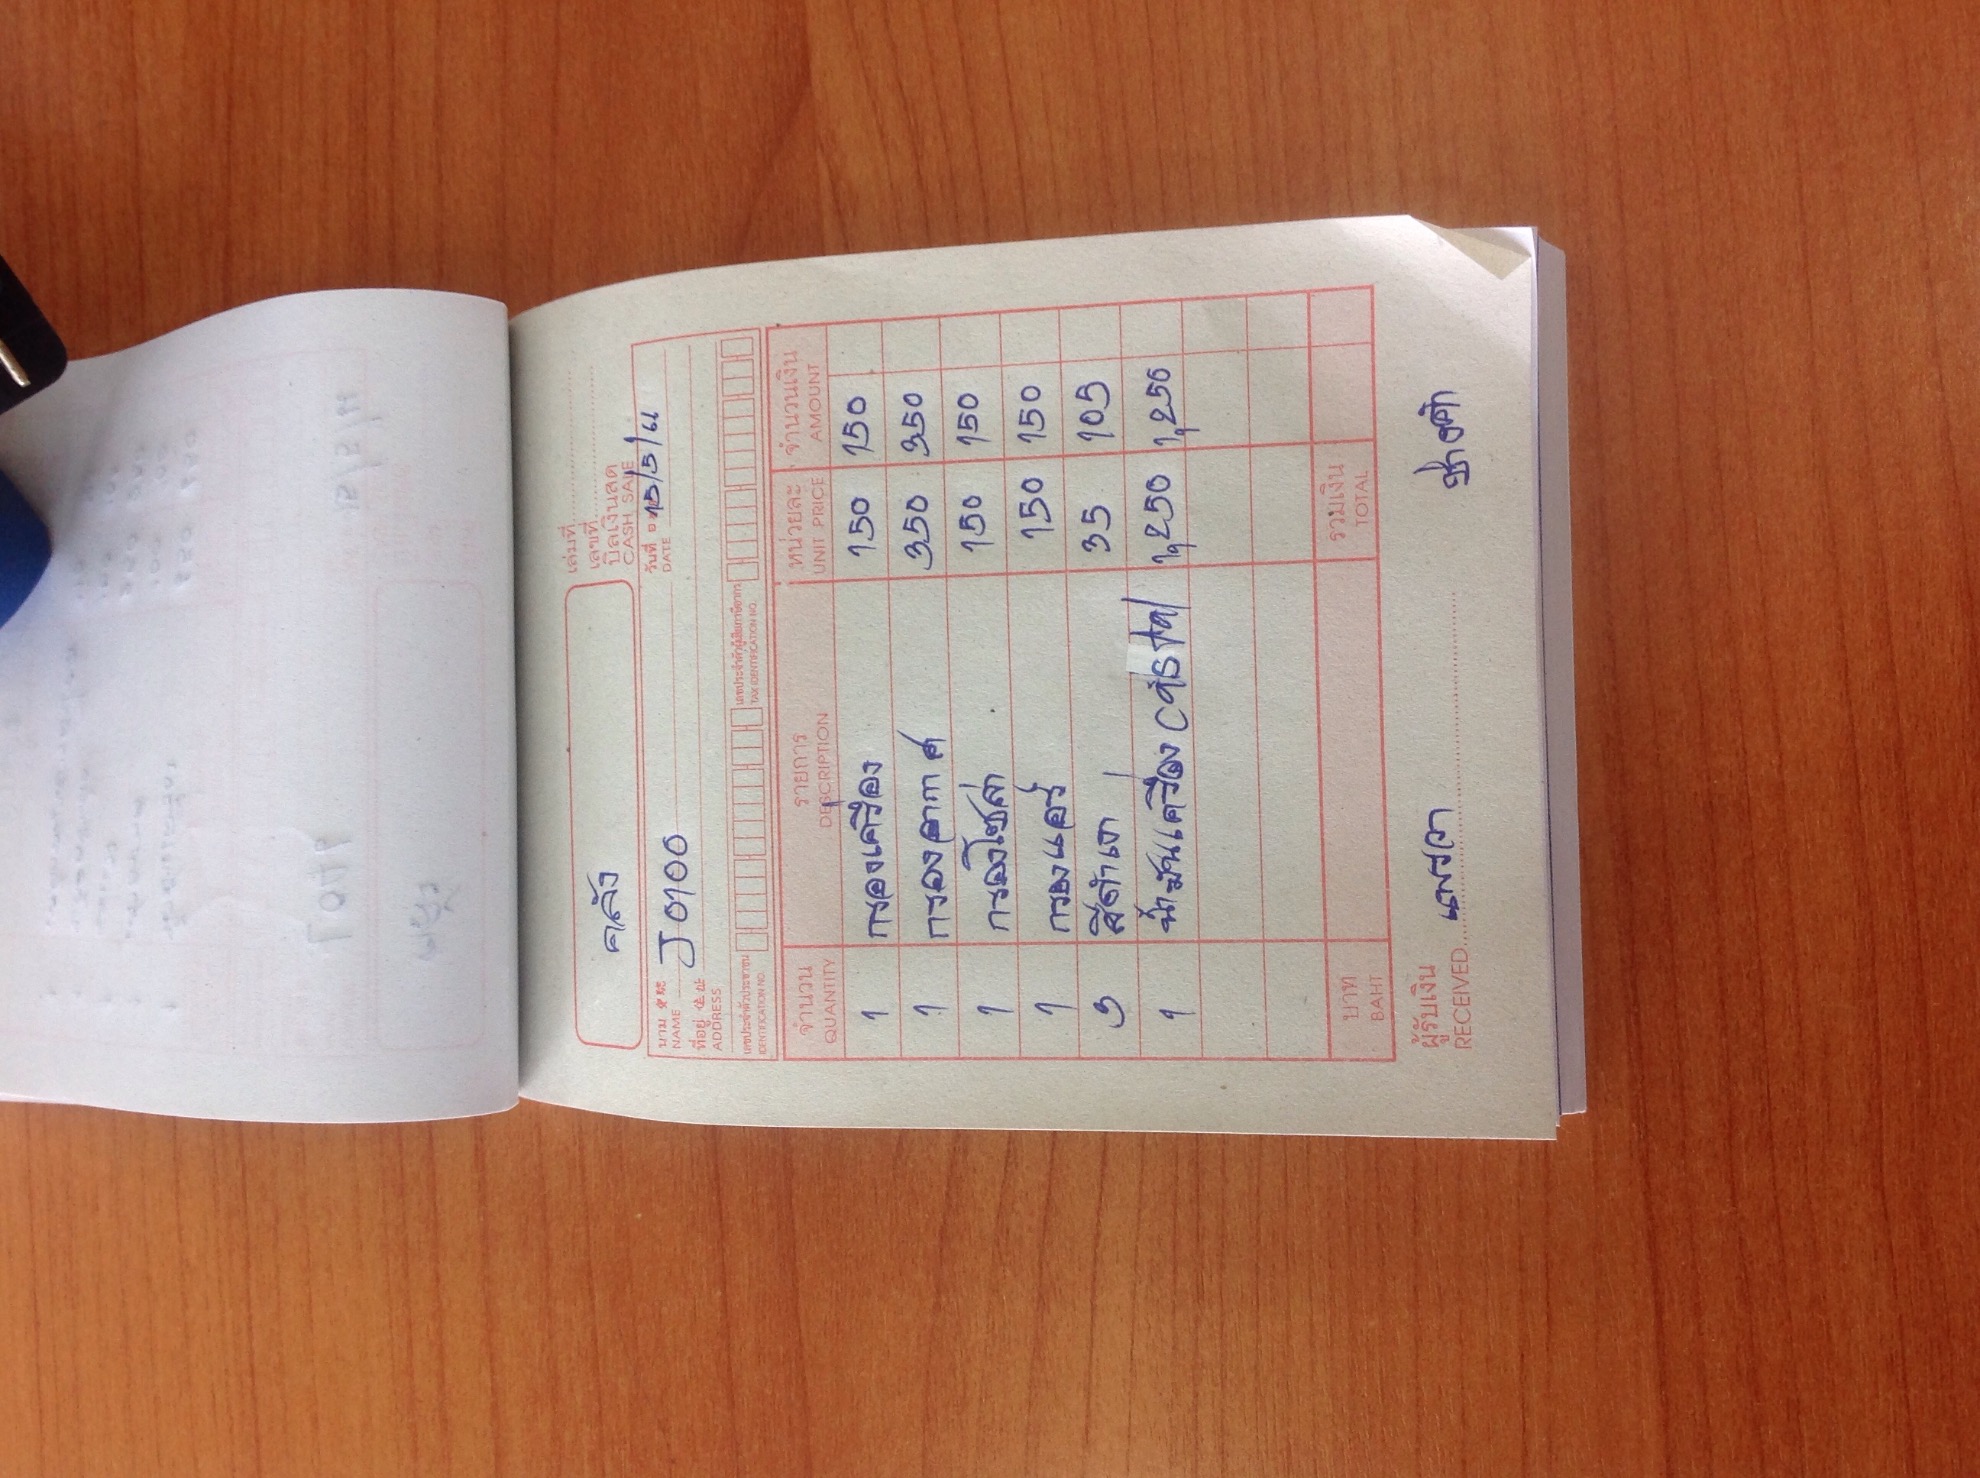 คลัง
เล่มที่
เลขที่
บิลเงินสด
CASH SALE
นาม NAME J0100 วันที่ DATE 15/5/61
ที่อยู่ ADDRESS
เลขประจำตัวประชาชน IDENTIFICATION NO. เลขประจำตัวผู้เสียภาษีอากร TAX IDENTIFICATION NO.
จำนวน รายการ หน่วยละ จำนวนเงิน
QUANTITY DESCRIPTION UNIT PRICE AMOUNT
1 กรองเครื่อง 150 150
1 กรองอากาศ 350 350
1 กรองโซล่า 150 150
1 กรองแอร์ 150 150
3 สีดำเงา 35 105
1 น้ำมันเครื่อง 1,250 1,250
บาท รวมเงิน
BAHT TOTAL
ผู้รับเงิน
RECEIVED